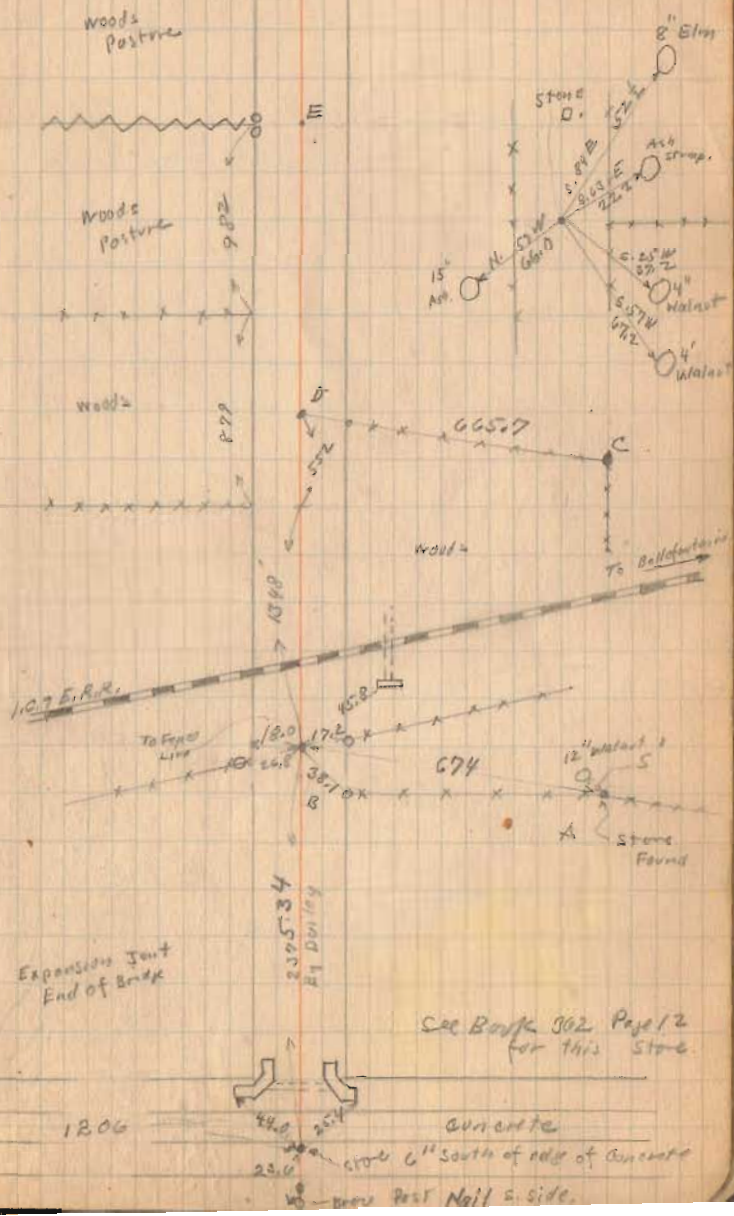 Woods
Pasture
8" Elm
Stone
E
52 L
Ash
Stump.
S.89 E
S.63 E
22.2
Woods
Pasture
982
N. 53 W
66.0
15"
Ash.
S.25 W
37.2
4"
Walnut
S.57 W
67.2
4'
Walnut
Woods
879
D
665.7
552
C
Woods
To Bellefontaine
1348'
E.R.R.
45.8
To Fence
Line
18.0
17.2
26.8
12" Walnut
S
674
38.1
B
A
Stone
Found
2375.34
By Durley
Expansion Joint
End of Bridge
See Book 302 Page 12
for this Stone.
44.0
25.4
1206
Concrete
Stone 6" South of edge of Concrete
23.6
Post Nail S. side.